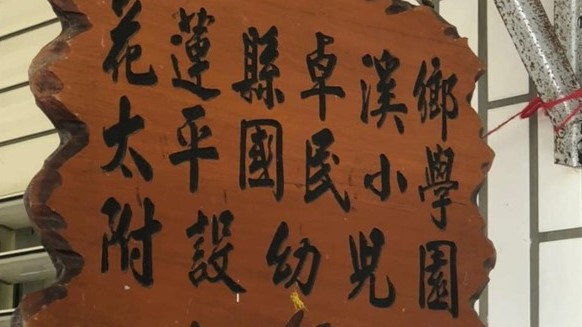 花蓮縣卓溪鄉
太平國民小學
附設幼兒園